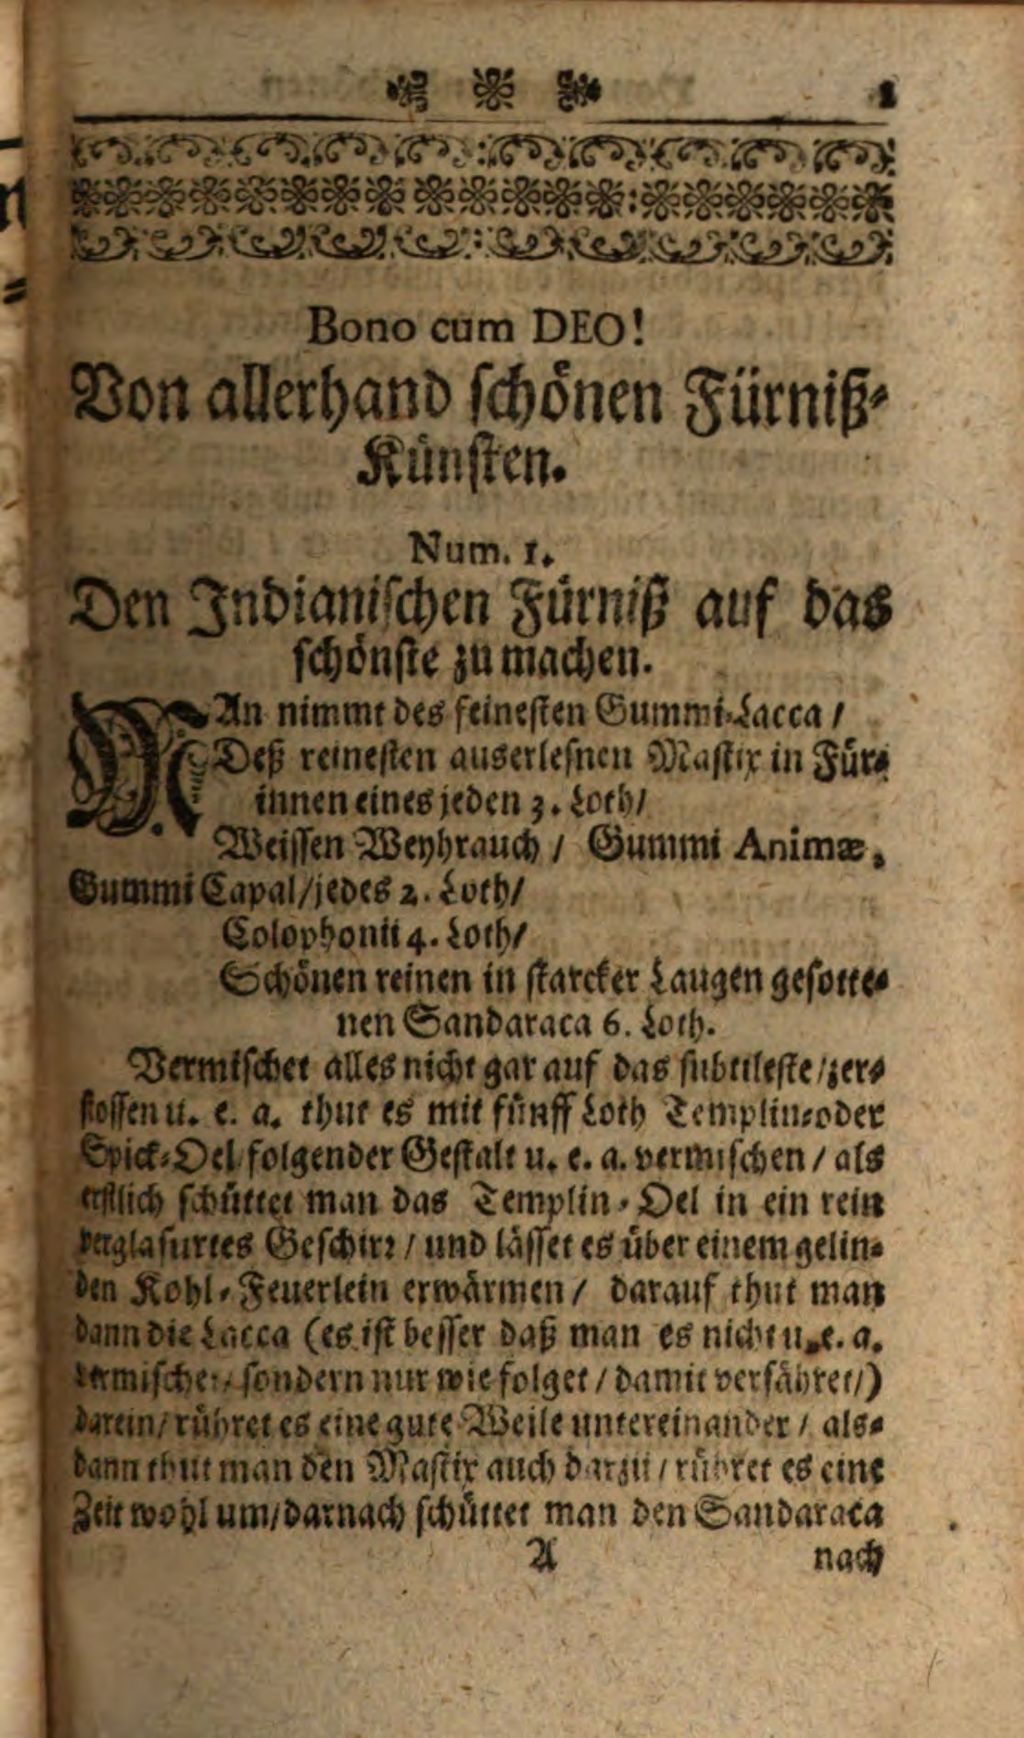 1
Bono cum DEO!
Von allerhand schönen Fürniß-
Künsten.
Num. 1.
Den Indianischen Fürniß auf das
schönste zu machen.
MAn nimmt des feinesten Gummi-Lacca /
Deß reinesten auserlesnen Mastix in Für-
innen eines jeden 3. Loth/
Weissen Weyhrauch / Gummi Animæ,
Gummi Capal/jedes 2. Loth/
Colophonii 4. Loth/
Schönen reinen in starcker Laugen gesotte-
nen Sandaraca 6. Loth.
Vermischet alles nicht gar auf das subtileste/zer-
stossen u. e. a. thut es mit fünff Loth Templin-oder
Spick-Oel/folgender Gestalt u. e. a. vermischen / als
erstlich schüttet man das Templin-Oel in ein rein
verglasurtes Geschirr / und lässet es über einem gelin-
den Kohl-Feuerlein erwärmen / darauf thut man
dann die Lacca (es ist besser daß man es nicht u. e. a.
vermische / sondern nur wie folget / damit verfähret/)
darein/ rühret es eine gute Weile untereinander / als-
dann thut man den Mastix auch darzu / rühret es eine
Zeit wohl um/darnach schüttet man den Sandaraca
A nach